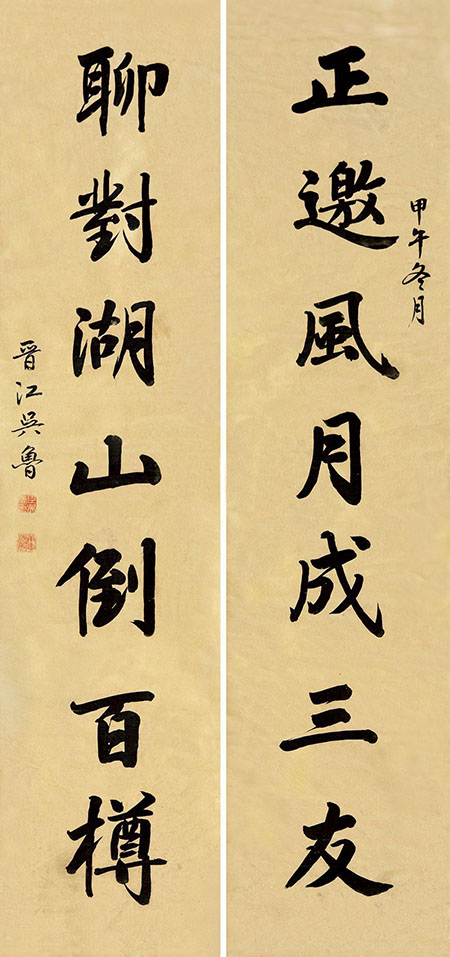 甲午冬月
正邀風月成三友
聊對湖山倒百樽
晉江吳魯